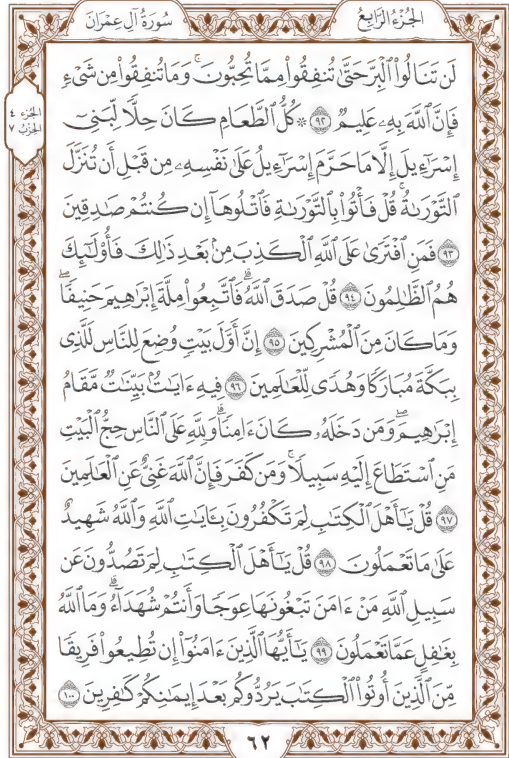 الجُزْءُ الرَّابِعُ سُورَةُ آلِ عِمْرَانَ
لَن تَنَالُوا۟ ٱلْبِرَّ حَتَّىٰ تُنفِقُوا۟ مِمَّا تُحِبُّونَ ۚ وَمَا تُنفِقُوا۟ مِن شَىْءٍ
فَإِنَّ ٱللَّهَ بِهِۦ عَلِيمٌ ٩٢ ۞ كُلُّ ٱلطَّعَامِ كَانَ حِلًّا لِّبَنِىٓ
إِسْرَٰٓءِيلَ إِلَّا مَا حَرَّمَ إِسْرَٰٓءِيلُ عَلَىٰ نَفْسِهِۦ مِن قَبْلِ أَن تُنَزَّلَ
ٱلتَّوْرَىٰةُ ۗ قُلْ فَأْتُوا۟ بِٱلتَّوْرَىٰةِ فَٱتْلُوهَآ إِن كُنتُمْ صَٰدِقِينَ
٩٣ فَمَنِ ٱفْتَرَىٰ عَلَى ٱللَّهِ ٱلْكَذِبَ مِنۢ بَعْدِ ذَٰلِكَ فَأُو۟لَٰٓئِكَ
هُمُ ٱلظَّٰلِمُونَ ٩٤ قُلْ صَدَقَ ٱللَّهُ ۗ فَٱتَّبِعُوا۟ مِلَّةَ إِبْرَٰهِيمَ حَنِيفًا ۖ
وَمَا كَانَ مِنَ ٱلْمُشْرِكِينَ ٩٥ إِنَّ أَوَّلَ بَيْتٍ وُضِعَ لِلنَّاسِ لَلَّذِى
بِبَكَّةَ مُبَارَكًا وَهُدًى لِّلْعَٰلَمِينَ ٩٦ فِيهِ ءَايَٰتٌۢ بَيِّنَٰتٌ مَّقَامُ
إِبْرَٰهِيمَ ۖ وَمَن دَخَلَهُۥ كَانَ ءَامِنًا ۗ وَلِلَّهِ عَلَى ٱلنَّاسِ حِجُّ ٱلْبَيْتِ
مَنِ ٱسْتَطَاعَ إِلَيْهِ سَبِيلًا ۚ وَمَن كَفَرَ فَإِنَّ ٱللَّهَ غَنِىٌّ عَنِ ٱلْعَٰلَمِينَ
٩٧ قُلْ يَٰٓأَهْلَ ٱلْكِتَٰبِ لِمَ تَكْفُرُونَ بِـَٔايَٰتِ ٱللَّهِ وَٱللَّهُ شَهِيدٌ
عَلَىٰ مَا تَعْمَلُونَ ٩٨ قُلْ يَٰٓأَهْلَ ٱلْكِتَٰبِ لِمَ تَصُدُّونَ عَن
سَبِيلِ ٱللَّهِ مَنْ ءَامَنَ تَبْغُونَهَا عِوَجًا وَأَنتُمْ شُهَدَآءُ ۗ وَمَا ٱللَّهُ
بِغَٰفِلٍ عَمَّا تَعْمَلُونَ ٩٩ يَٰٓأَيُّهَا ٱلَّذِينَ ءَامَنُوٓا۟ إِن تُطِيعُوا۟ فَرِيقًا
مِّنَ ٱلَّذِينَ أُوتُوا۟ ٱلْكِتَٰبَ يَرُدُّوكُم بَعْدَ إِيمَٰنِكُمْ كَٰفِرِينَ ١٠٠
الجزء ٤
الحزب ٧
٦٢